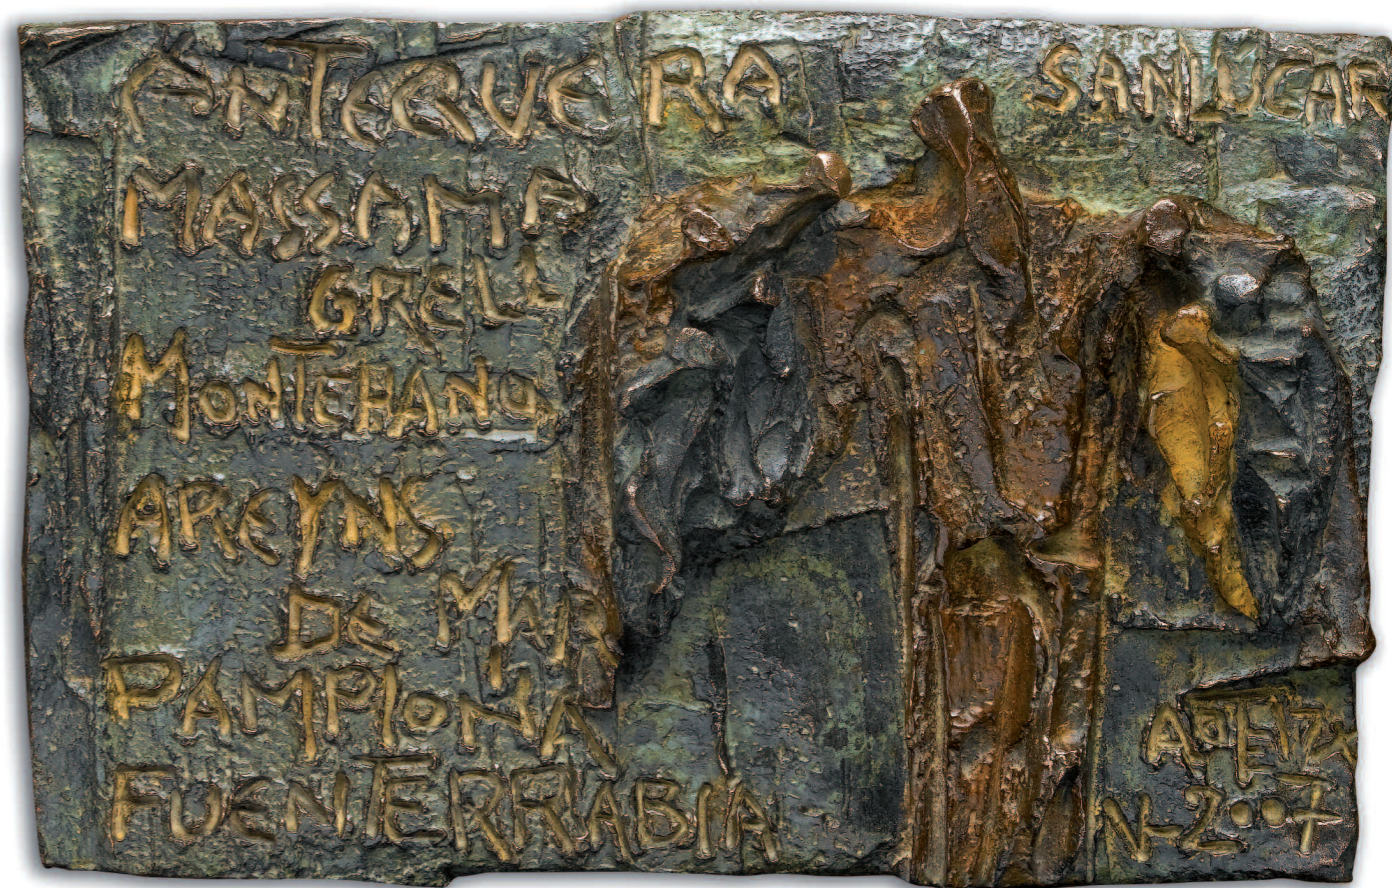 ANTEQUERA SANLUCAR
MASSAMA
GRELL
MONTEHANO
AREYNS
DE MAR
PAMPlONA
FUENTERRABIA
N-2007